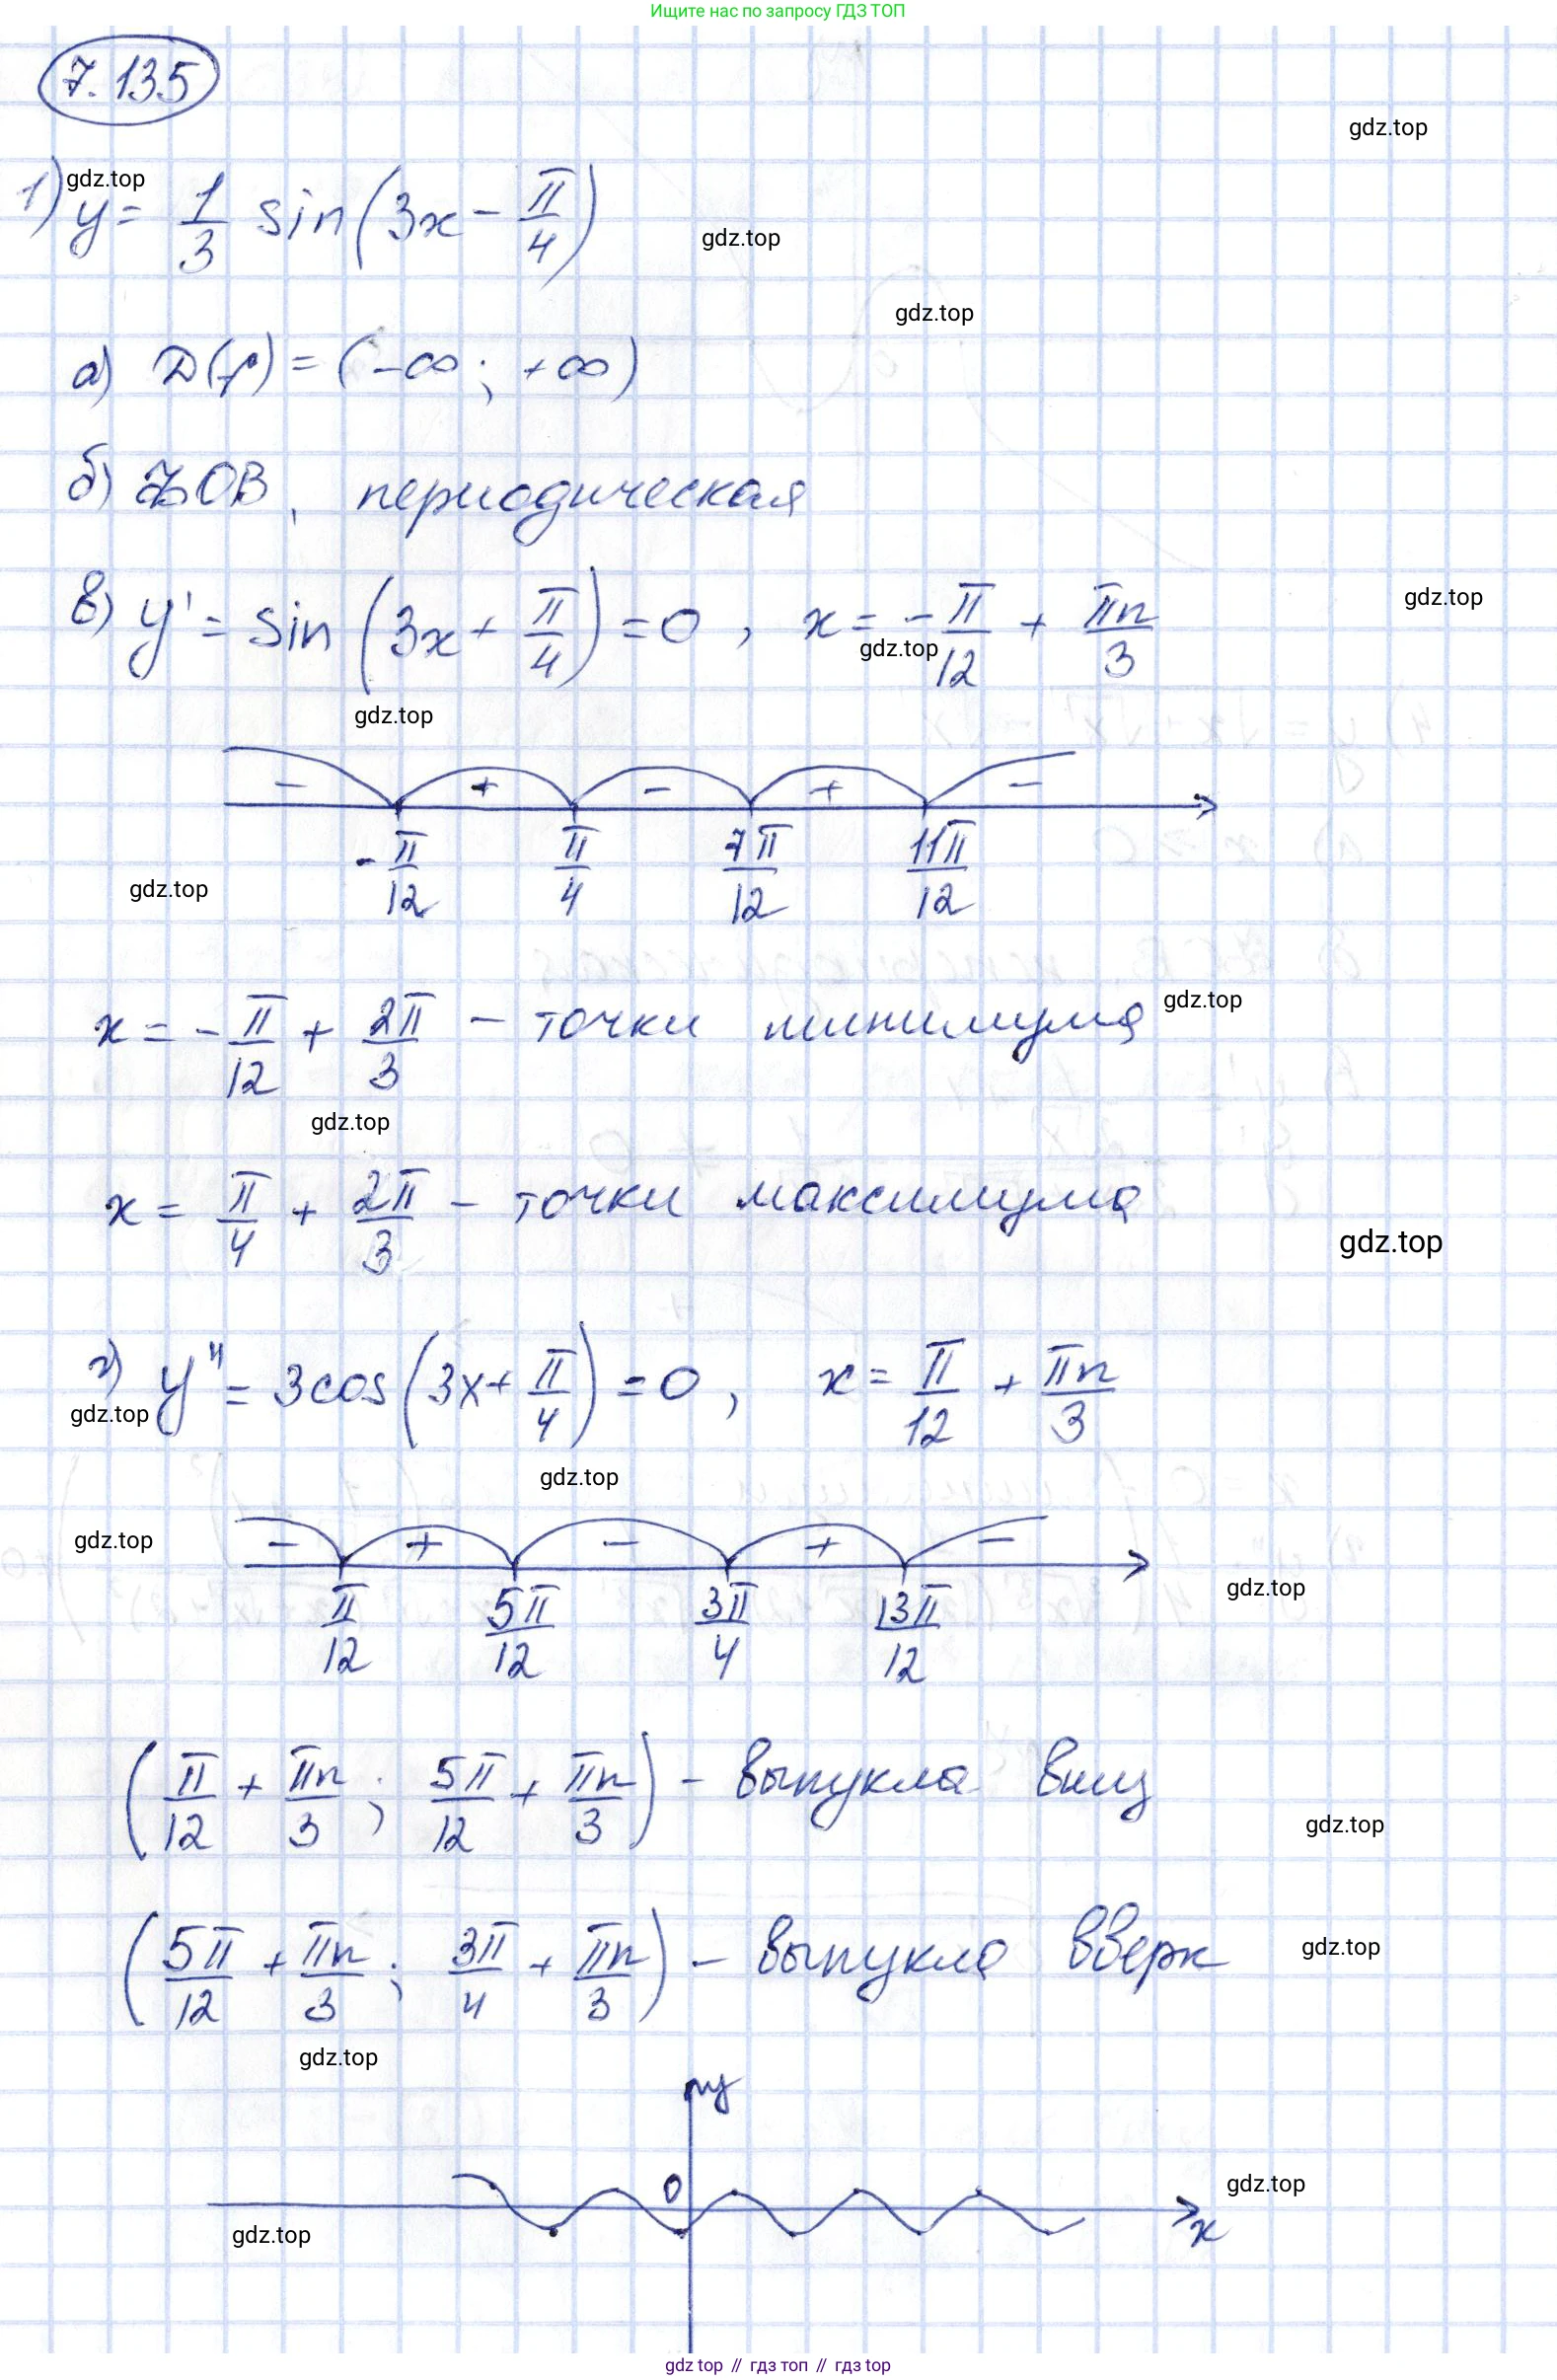 Ищите нас по запросу ГДЗ ТОП
7.135
gdz.top
1) y = 1/3 sin(3x - π/4)
gdz.top
gdz.top
gdz.top
а) D(f) = (-∞; +∞)
б) ФОВ, периодическая
в) y' = sin(3x + π/4) = 0, x = -π/12 + πn/3
gdz.top
gdz.top
gdz.top
- + - + -
-π/12 π/4 7π/12 11π/12
gdz.top
x = -π/12 + 2π/3 - точки минимума
gdz.top
gdz.top
x = π/4 + 2π/3 - точки максимума
gdz.top
г) y'' = 3cos(3x + π/4) = 0, x = π/12 + πn/3
gdz.top
gdz.top
gdz.top
- + - + -
π/12 5π/12 3π/4 13π/12
gdz.top
(π/12 + πn/3; 5π/12 + πn/3) - выпукла вниз
gdz.top
(5π/12 + πn/3; 3π/4 + πn/3) - выпукла вверх
gdz.top
gdz.top
y
0
gdz.top
x
gdz.top
gdz top // гдз топ // гдз top